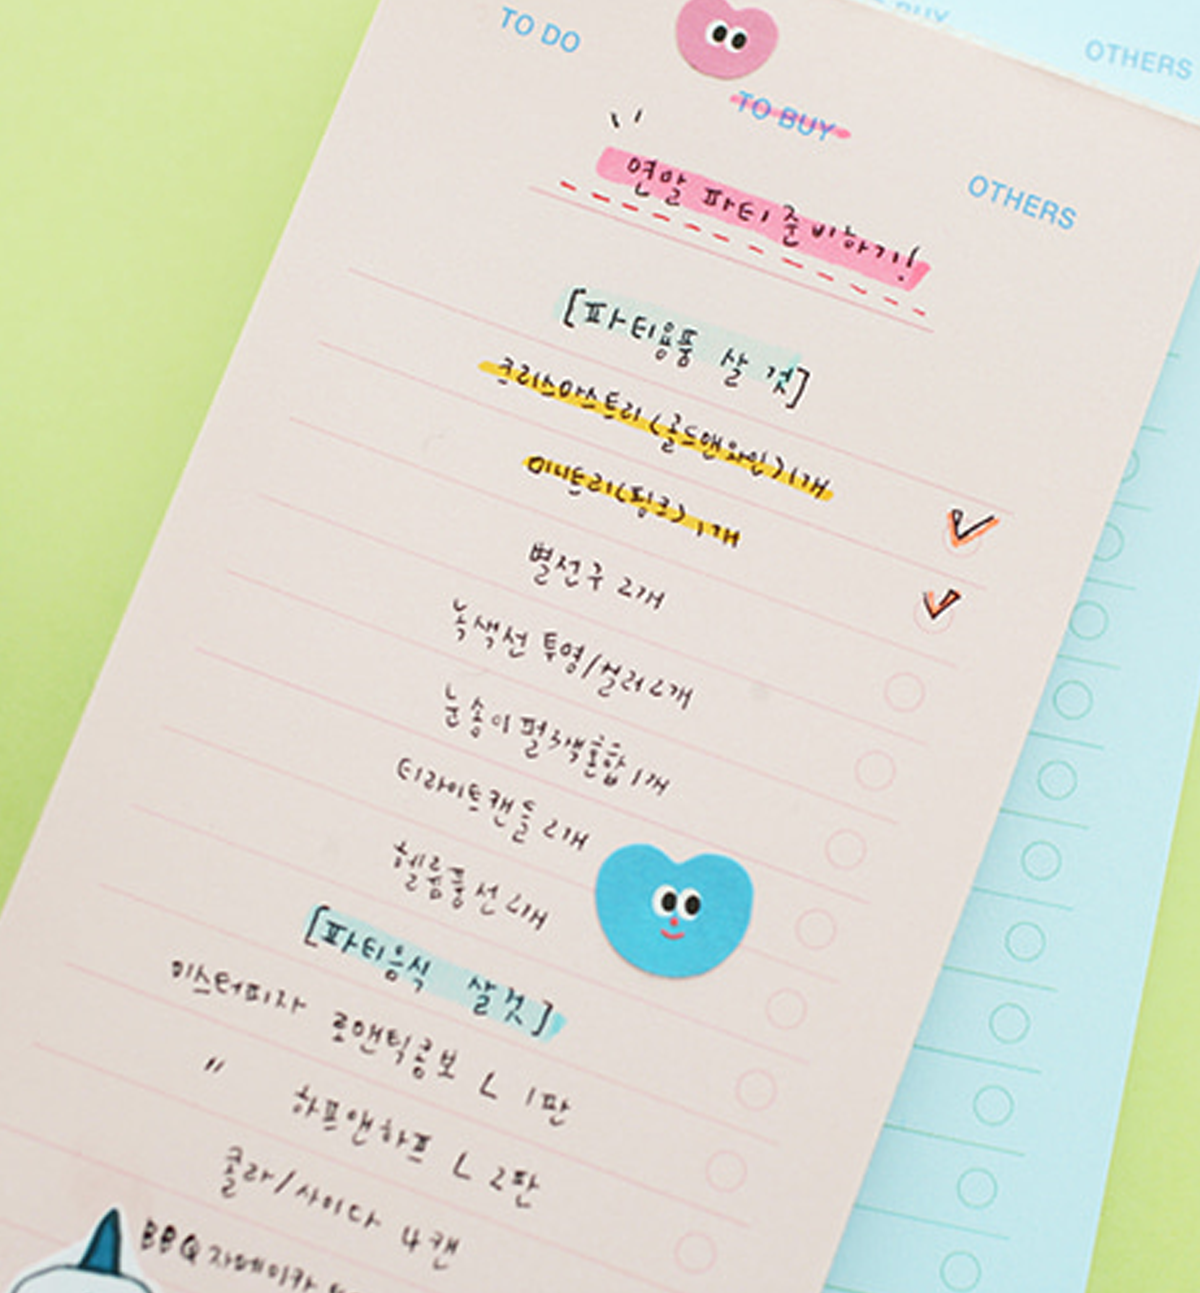 TO DO
TO BUY
OTHERS
BUY
OTHERS
연말 파티 준비하기!
[파티용품 살 것]
크리스마스트리(골드앤와인)1개
미니트리(핑크) 1개
별전구 2개
녹색선 투명/컬러 2개
눈송이 펄3색혼합 1개
티라이트캔들 2개
헬륨풍선 2개
[파티음식 살것]
미스터피자 로맨틱콤보 L 1판
" 하프앤하프 L 2판
콜라/사이다 4캔
BBQ 자메이카